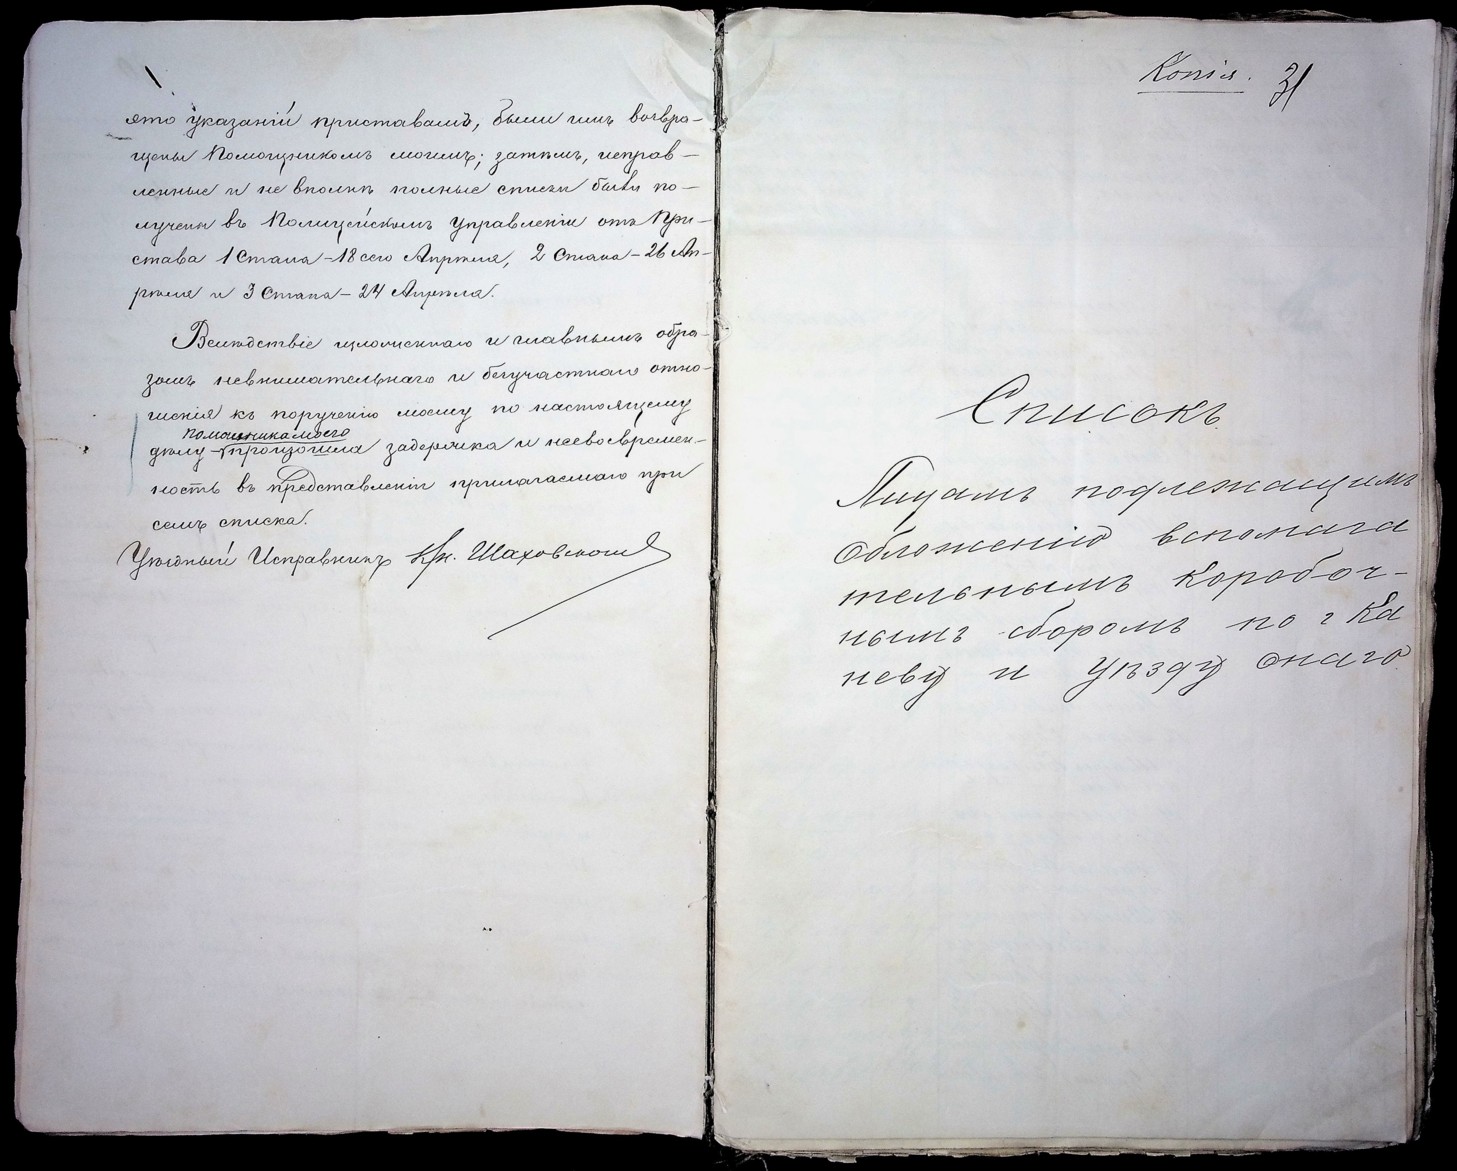 ято указаній приставамъ, были имъ возвра-
щены Помощникомъ моимъ; затѣмъ, исправ-
ленные и не вполнѣ полные списки были по-
лучены въ Полицейскомъ Управленіи отъ При-
става 1 Стана - 18 сего Апрѣля, 2 Стана - 26 Ап-
рѣля и 3 Стана - 24 Апрѣля.
Вслѣдствіе изложеннаго и главнымъ обра-
зомъ невнимательнаго и безучастнаго отно-
шенія къ порученію моему по настоящему
помощника моего
дѣлу - произошла задержка и несвоевремен-
ность въ представленіи прилагаемаго при
семъ списка.
Уѣздный Исправникъ Кн. Шаховской
Копія. 31
Списокъ
Лицамъ подлежащимъ
обложенію вспомага
тельнымъ коробоч-
нымъ сборомъ по г Ка
неву и уѣзду онаго